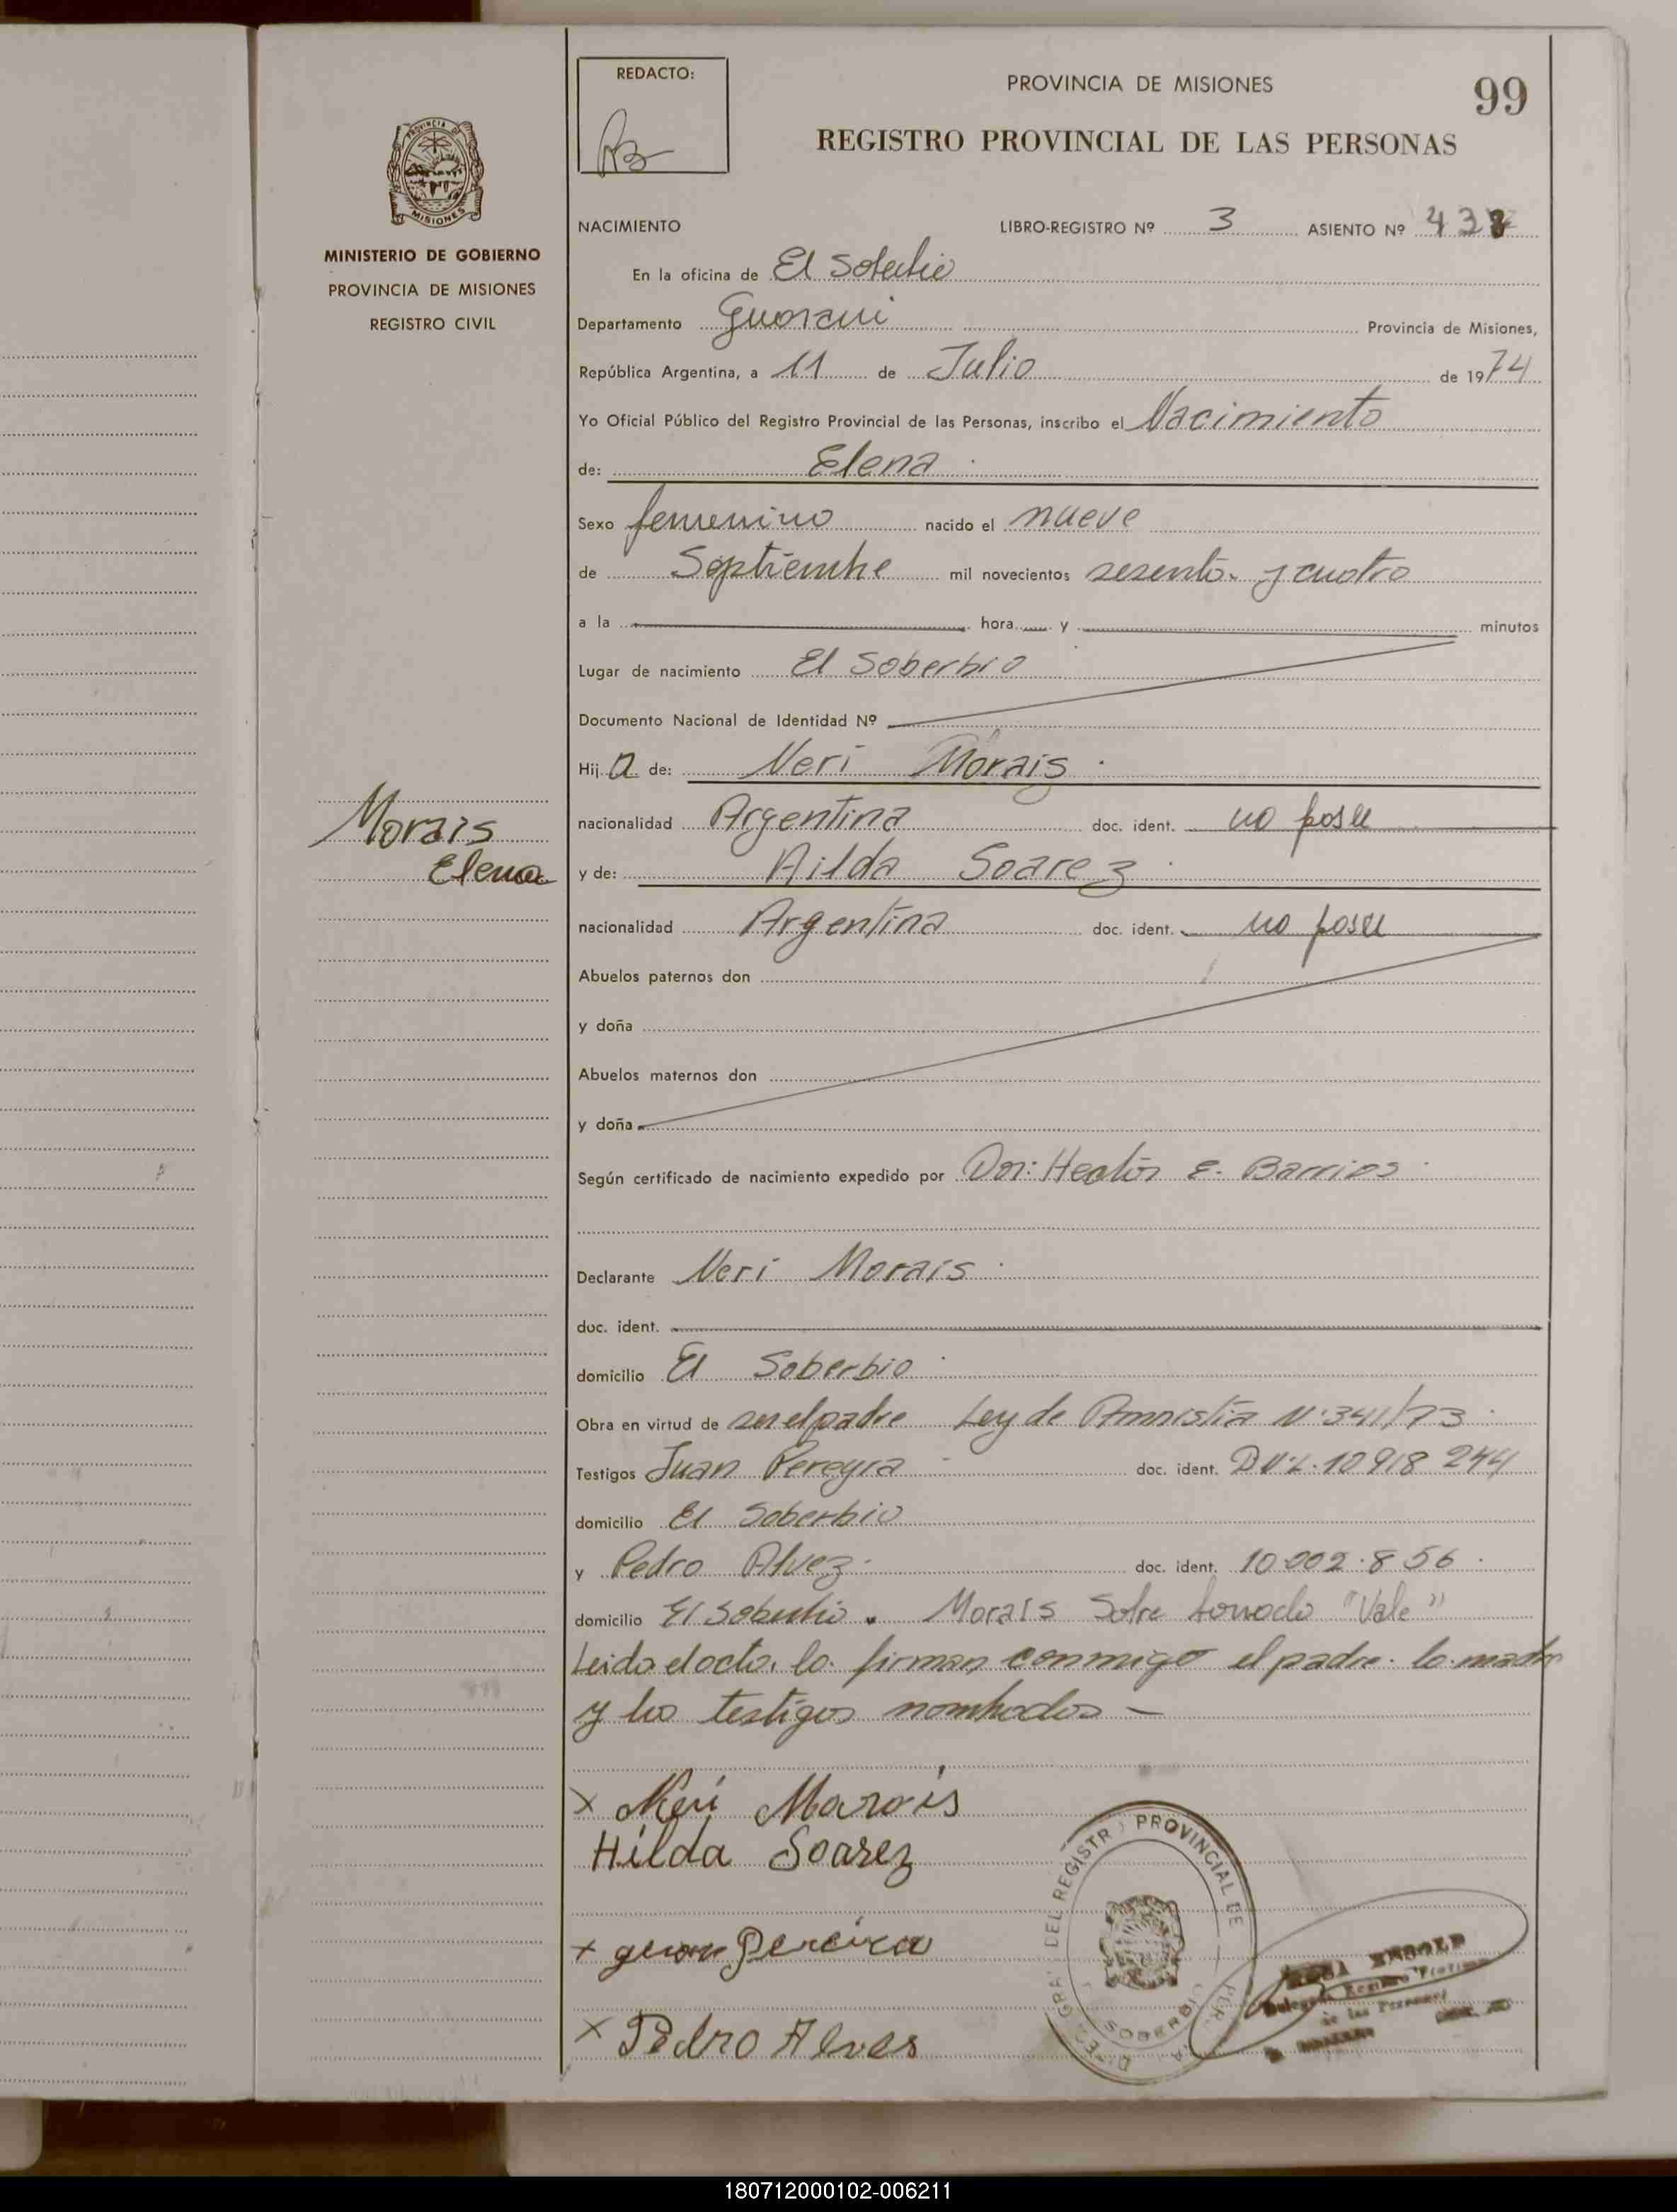 REDACTO:
PROVINCIA DE MISIONES
99
REGISTRO PROVINCIAL DE LAS PERSONAS
PROVINCIA DE
MISIONES
MINISTERIO DE GOBIERNO
PROVINCIA DE MISIONES
REGISTRO CIVIL
NACIMIENTO LIBRO-REGISTRO Nº 3 ASIENTO Nº 43
En la oficina de El Soberbio
Departamento Guarani Provincia de Misiones,
República Argentina, a 11 de Julio de 1974
Yo Oficial Público del Registro Provincial de las Personas, inscribo el Nacimiento
de: Elena
Sexo femenino nacido el nueve
de Septiembre mil novecientos sesenta y cuatro
a la hora y minutos
Lugar de nacimiento El Soberbio
Documento Nacional de Identidad Nº
Hija de: Neri Morais
nacionalidad Argentina doc. ident. no posee
Morais
Elena
y de: Hilda Soarez
nacionalidad Argentina doc. ident. no posee
Abuelos paternos don
y doña
Abuelos maternos don
y doña
Según certificado de nacimiento expedido por Dor: Hector E. Barrios
Declarante Neri Morais
doc. ident.
domicilio El Soberbio
Obra en virtud de ser el padre Ley de Amnistia Nº 341/73
Testigos Juan Pereyra doc. ident. 10918 244
domicilio El Soberbio
y Pedro Alvez doc. ident. 10.002.856
domicilio El Soberbio. Morais Sobre borrado "Vale"
Leida el acta, la firman conmigo el padre. la madre
y los testigos nombrados —
x Neri Morais
Hilda Soarez
x Pereira
x Pedro Alves
REGISTRO PROVINCIAL DE
180712000102-006211